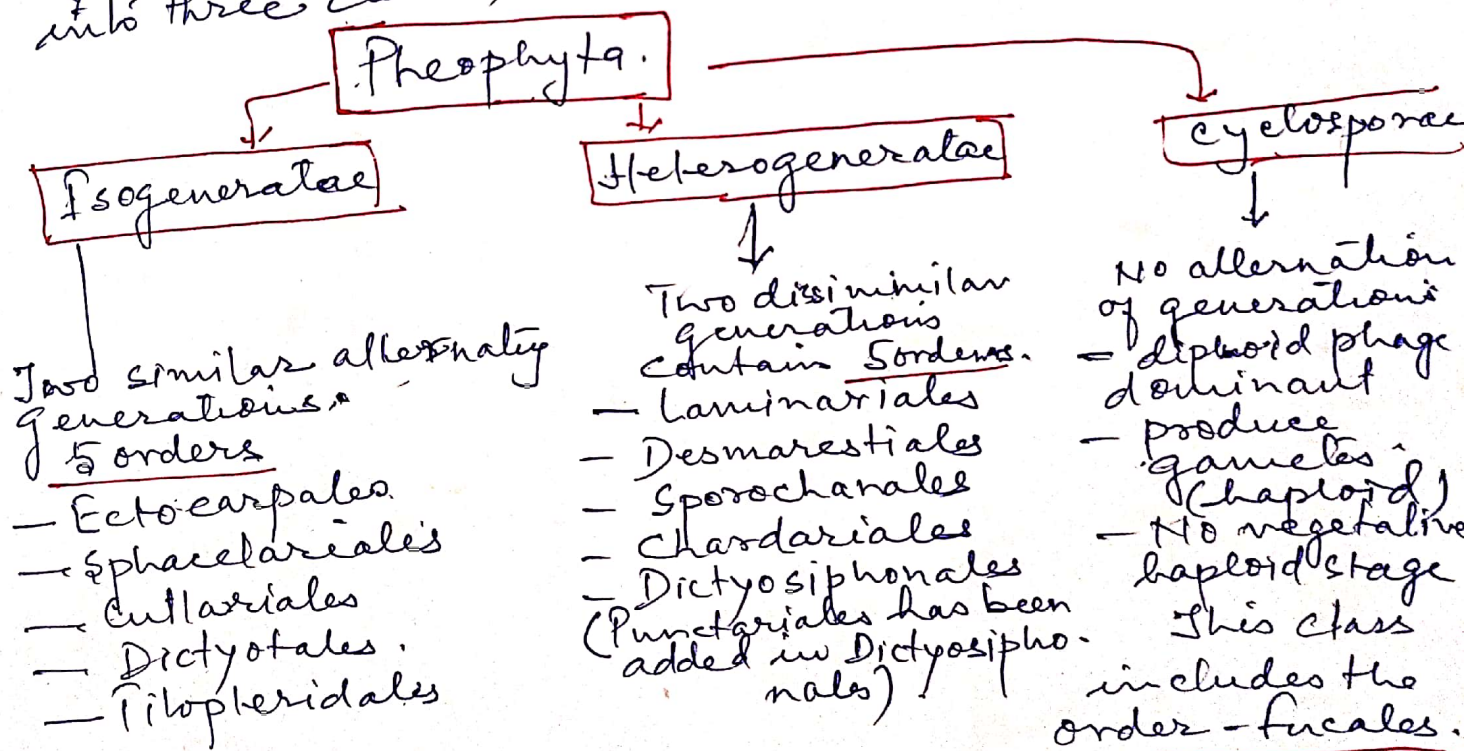 into three
Pheophyta.
Isogeneratae
Heterogeneratae
cyclosporae
Two similar alternating
generations.
5 orders
- Ectocarpales.
- Sphacelariales
- Cutlariales
- Dictyotales.
- Tilopteridales
Two dissimimilar
generations
contain 5 orders.
- Laminariales
- Desmarestiales
- Sporochanales
- Chardariales
- Dictyosiphonales
(Punctariales has been
added in Dictyosipho-
nales)
No alternation
of generations
- diploid phage
dominant
- produce
gametes.
(haploid)
- No vegetative
haploid stage
This class
includes the
order - fucales.